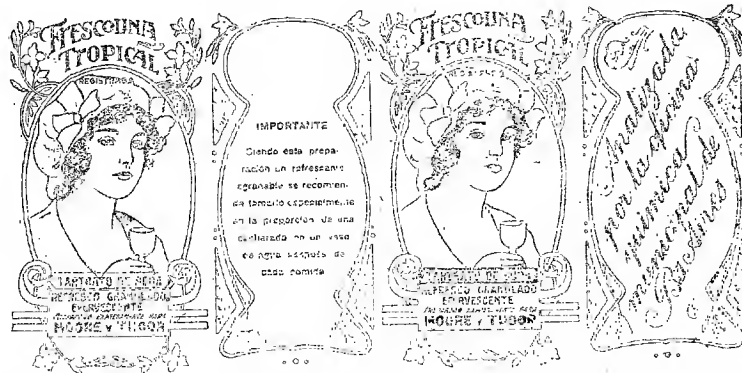 FRESCOLINA
TROPICAL
REGISTRADA
TARTRATO DE SODA
REFRESCO GRANULADO
EFERVESCENTE
MOORE Y TUDOR
IMPORTANTE
Siendo esta prepa-
ración un refrescante
agradable se recomien-
da tomarlo especialmente
en la proporción de una
cucharada en un vaso
de agua después de
cada comida
FRESCOLINA
TROPICAL
REGISTRADA
TARTRATO DE SODA
REFRESCO GRANULADO
EFERVESCENTE
MOORE Y TUDOR
Analizada
por la oficina
química
municipal de
Bs. Aires